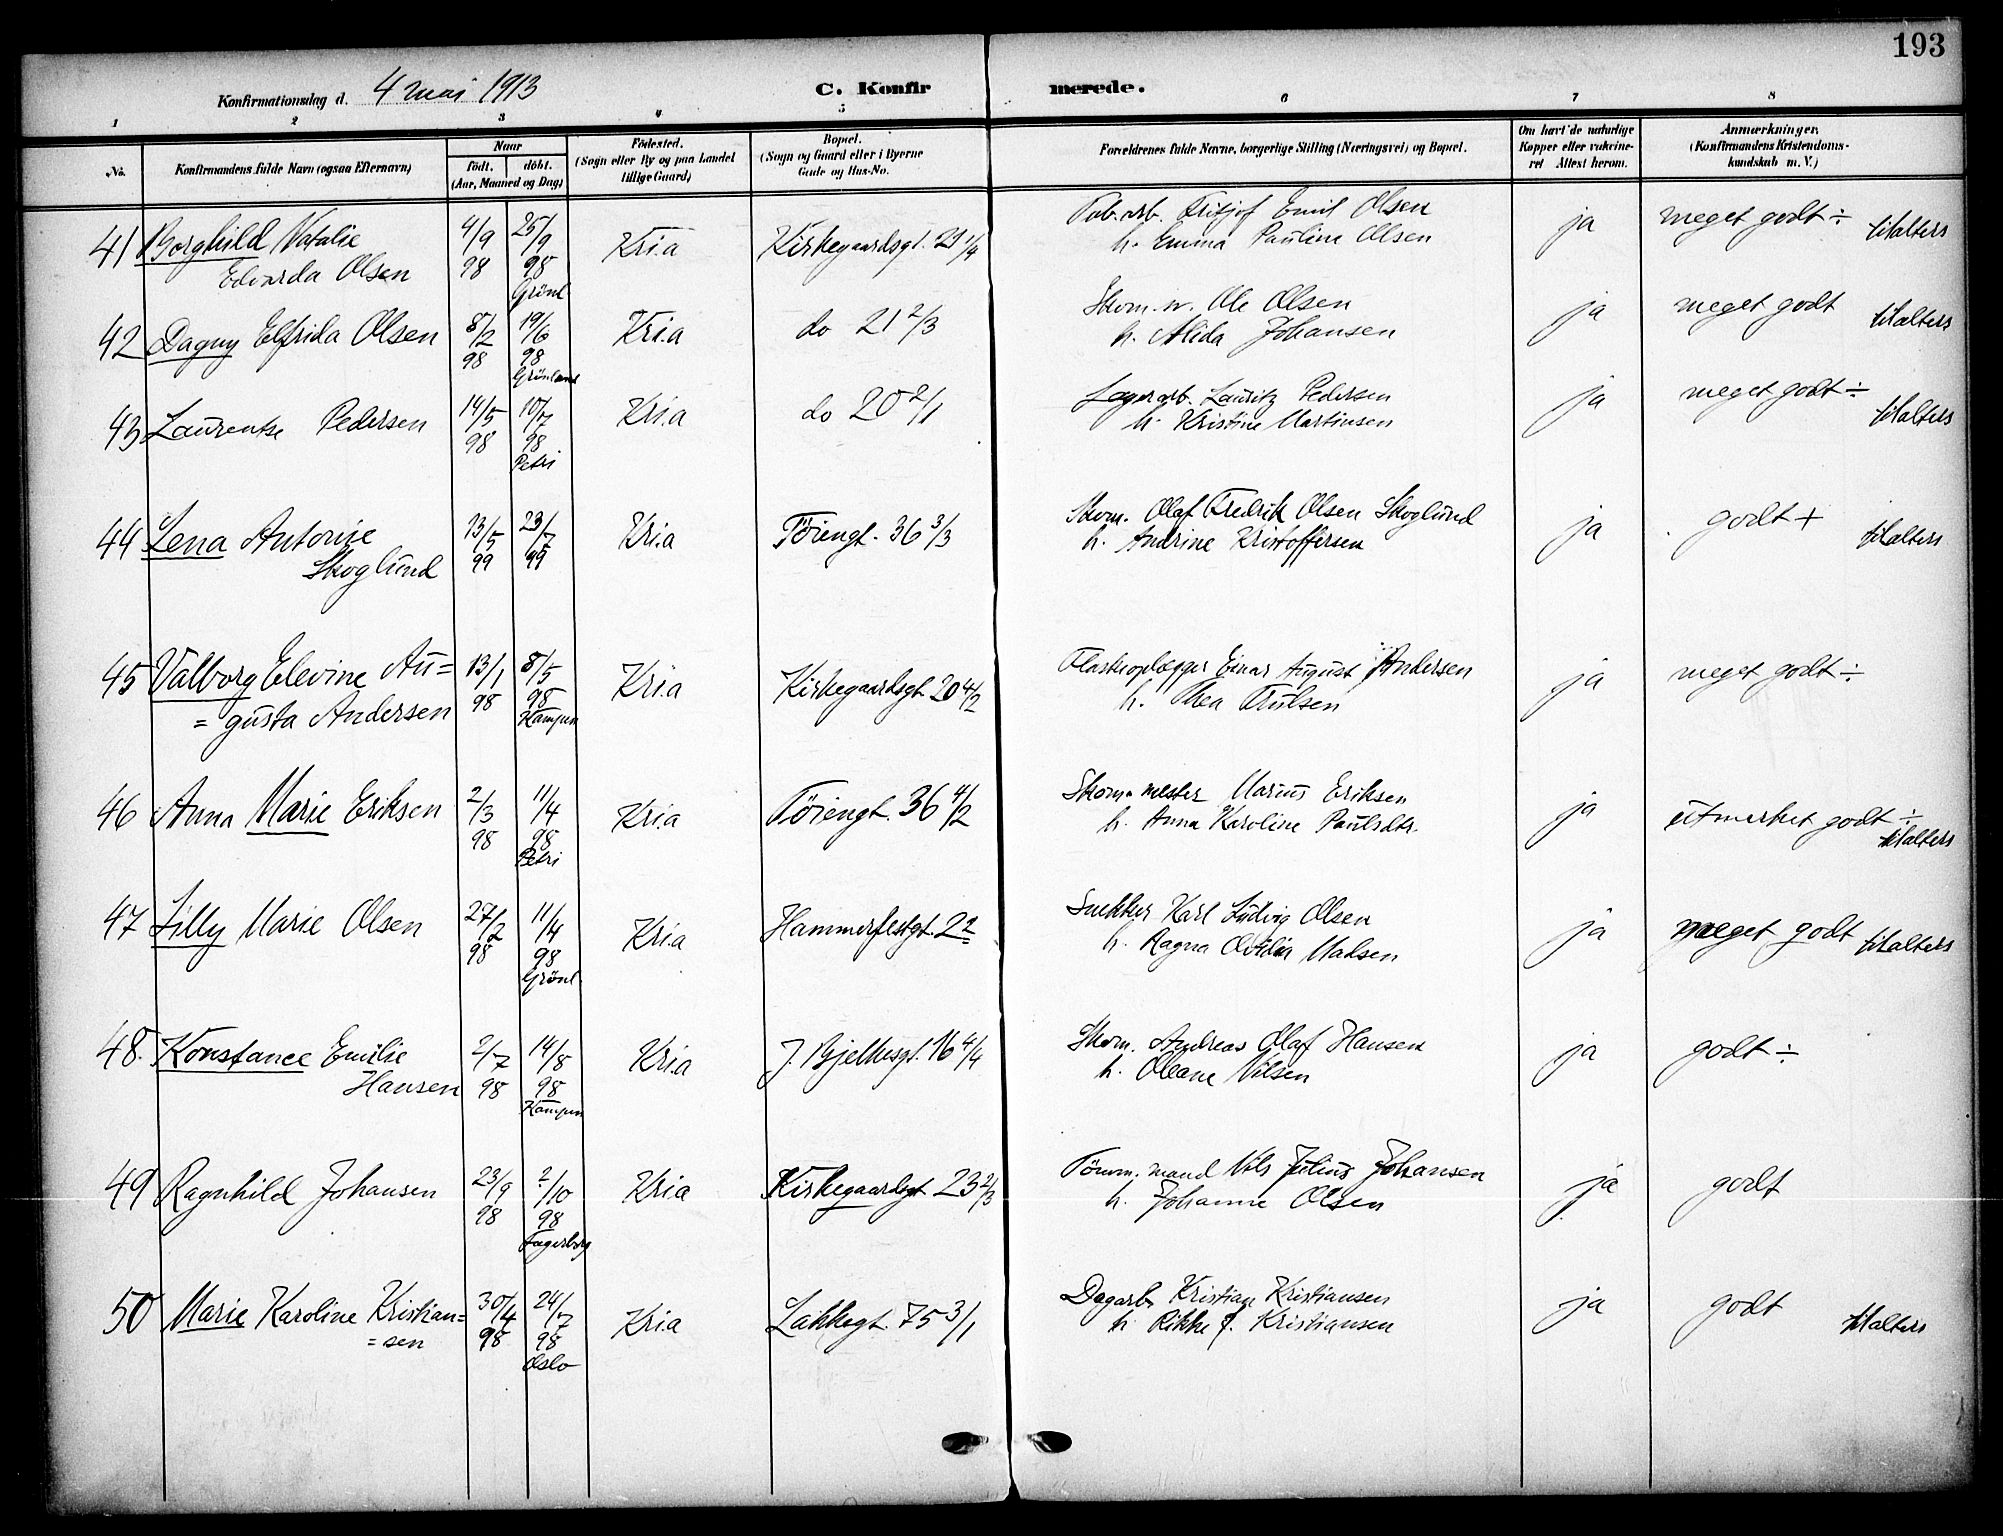 193
Konfirmationsdag d. 4 mai 1913
C. Konfirmerede.
1 2 3 4 5 6 7 8
No.
Konfirmandens fulde Navn (ogsaa Efternavn)
Naar
födt. döbt.
(Aar, Maaned og Dag)
Födested.
(Sogn eller By og paa Landet
tillige Gaard)
Bopæl.
(Sogn og Gaard eller i Byerne
Gade og Hus-No.
Forældrenes fulde Navne, borgerlige Stilling (Næringsvei) og Bopæl.
Om havt de naturlige
Kopper eller vakcine-
ret Attest herom.
Anmærkninger.
(Konfirmandens Kristendoms-
kundskab m. V.)
41 Borghild Natalie 4/9 25/9 Kria Kirkegaardsgt. 21 1/4 Fab. arb. Fritjof Emil Olsen ja meget godt ÷ tilalters
Edvarda Olsen 98 98 h. Emma Pauline Olsen
Grönl.
42 Dagny Elfrida Olsen 8/2 19/6 Kria do 21 2/3 Skom. Ole Olsen ja meget godt tilalters
98 98 h. Alida Johansen
Grönland
43 Laurentse Pedersen 14/5 10/7 Kria do 20 2/1 Lagerarb. Lauritz Pedersen ja meget godt ÷ tilalters
98 98 h. Kristine Martinsen
Petri
44 Lena Antonie 13/5 23/7 Kria Töiengt. 36 3/3 Skom. Olaf Fredrik Olsen Skoglund ja godt + tilalters
Skoglund 99 99 h. Andrine Kristoffersen
45 Valborg Elevine Au= 13/1 8/5 Kria Kirkegaardsgt 20 4/2 Flaskeoplægger Einar August Andersen ja meget godt ÷
= gusta Andersen 98 98 h. Thea Trulsen
Kampen
46 Anna Marie Eriksen 2/3 11/4 Kria Töiengt. 36 4/2 Skom. mester Marius Eriksen ja utmerket godt ÷
98 98 h. Anna Karoline Paulsdtr. tilalters
Petri
47 Lilly Marie Olsen 27/2 11/4 Kria Hammerfestgt. 2 2 Snekker Karl Ludvig Olsen ja meget godt tilalters
98 98 h. Ragna Madsen
Grönl.
48. Konstance Emilie 2/7 14/8 Kria J. Bjelkesgt. 16 4/4 Skom. Andreas Olaf Hansen ja godt ÷
Hansen 98 98 h. Oleane Nilsen
Kampen
49 Ragnhild Johansen 23/9 2/10 Kria Kirkegaardsgt 23 2/3 Tömm. mand Nils Julius Johansen ja godt
98 98 h. Johanne Olsen
Fagerborg
50 Marie Karoline Kristian= 30/4 24/7 Kria Lakkegt. 75 3/1 Dagarb. Kristian Kristiansen ja godt
= sen 98 98 h. Rikke J. Kristiansen tilalters
Oslo